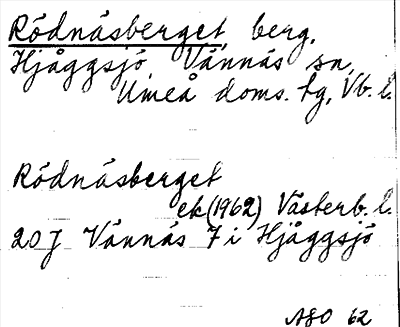 Rödnäsberget, berg,
Hjåggsjö, Vännäs sn,
Umeå doms. tg, Vb. l.
Rödnäsberget
ek(1962) Västerb. l.
20J Vännäs 7i Hjåggsjö
ASO 62